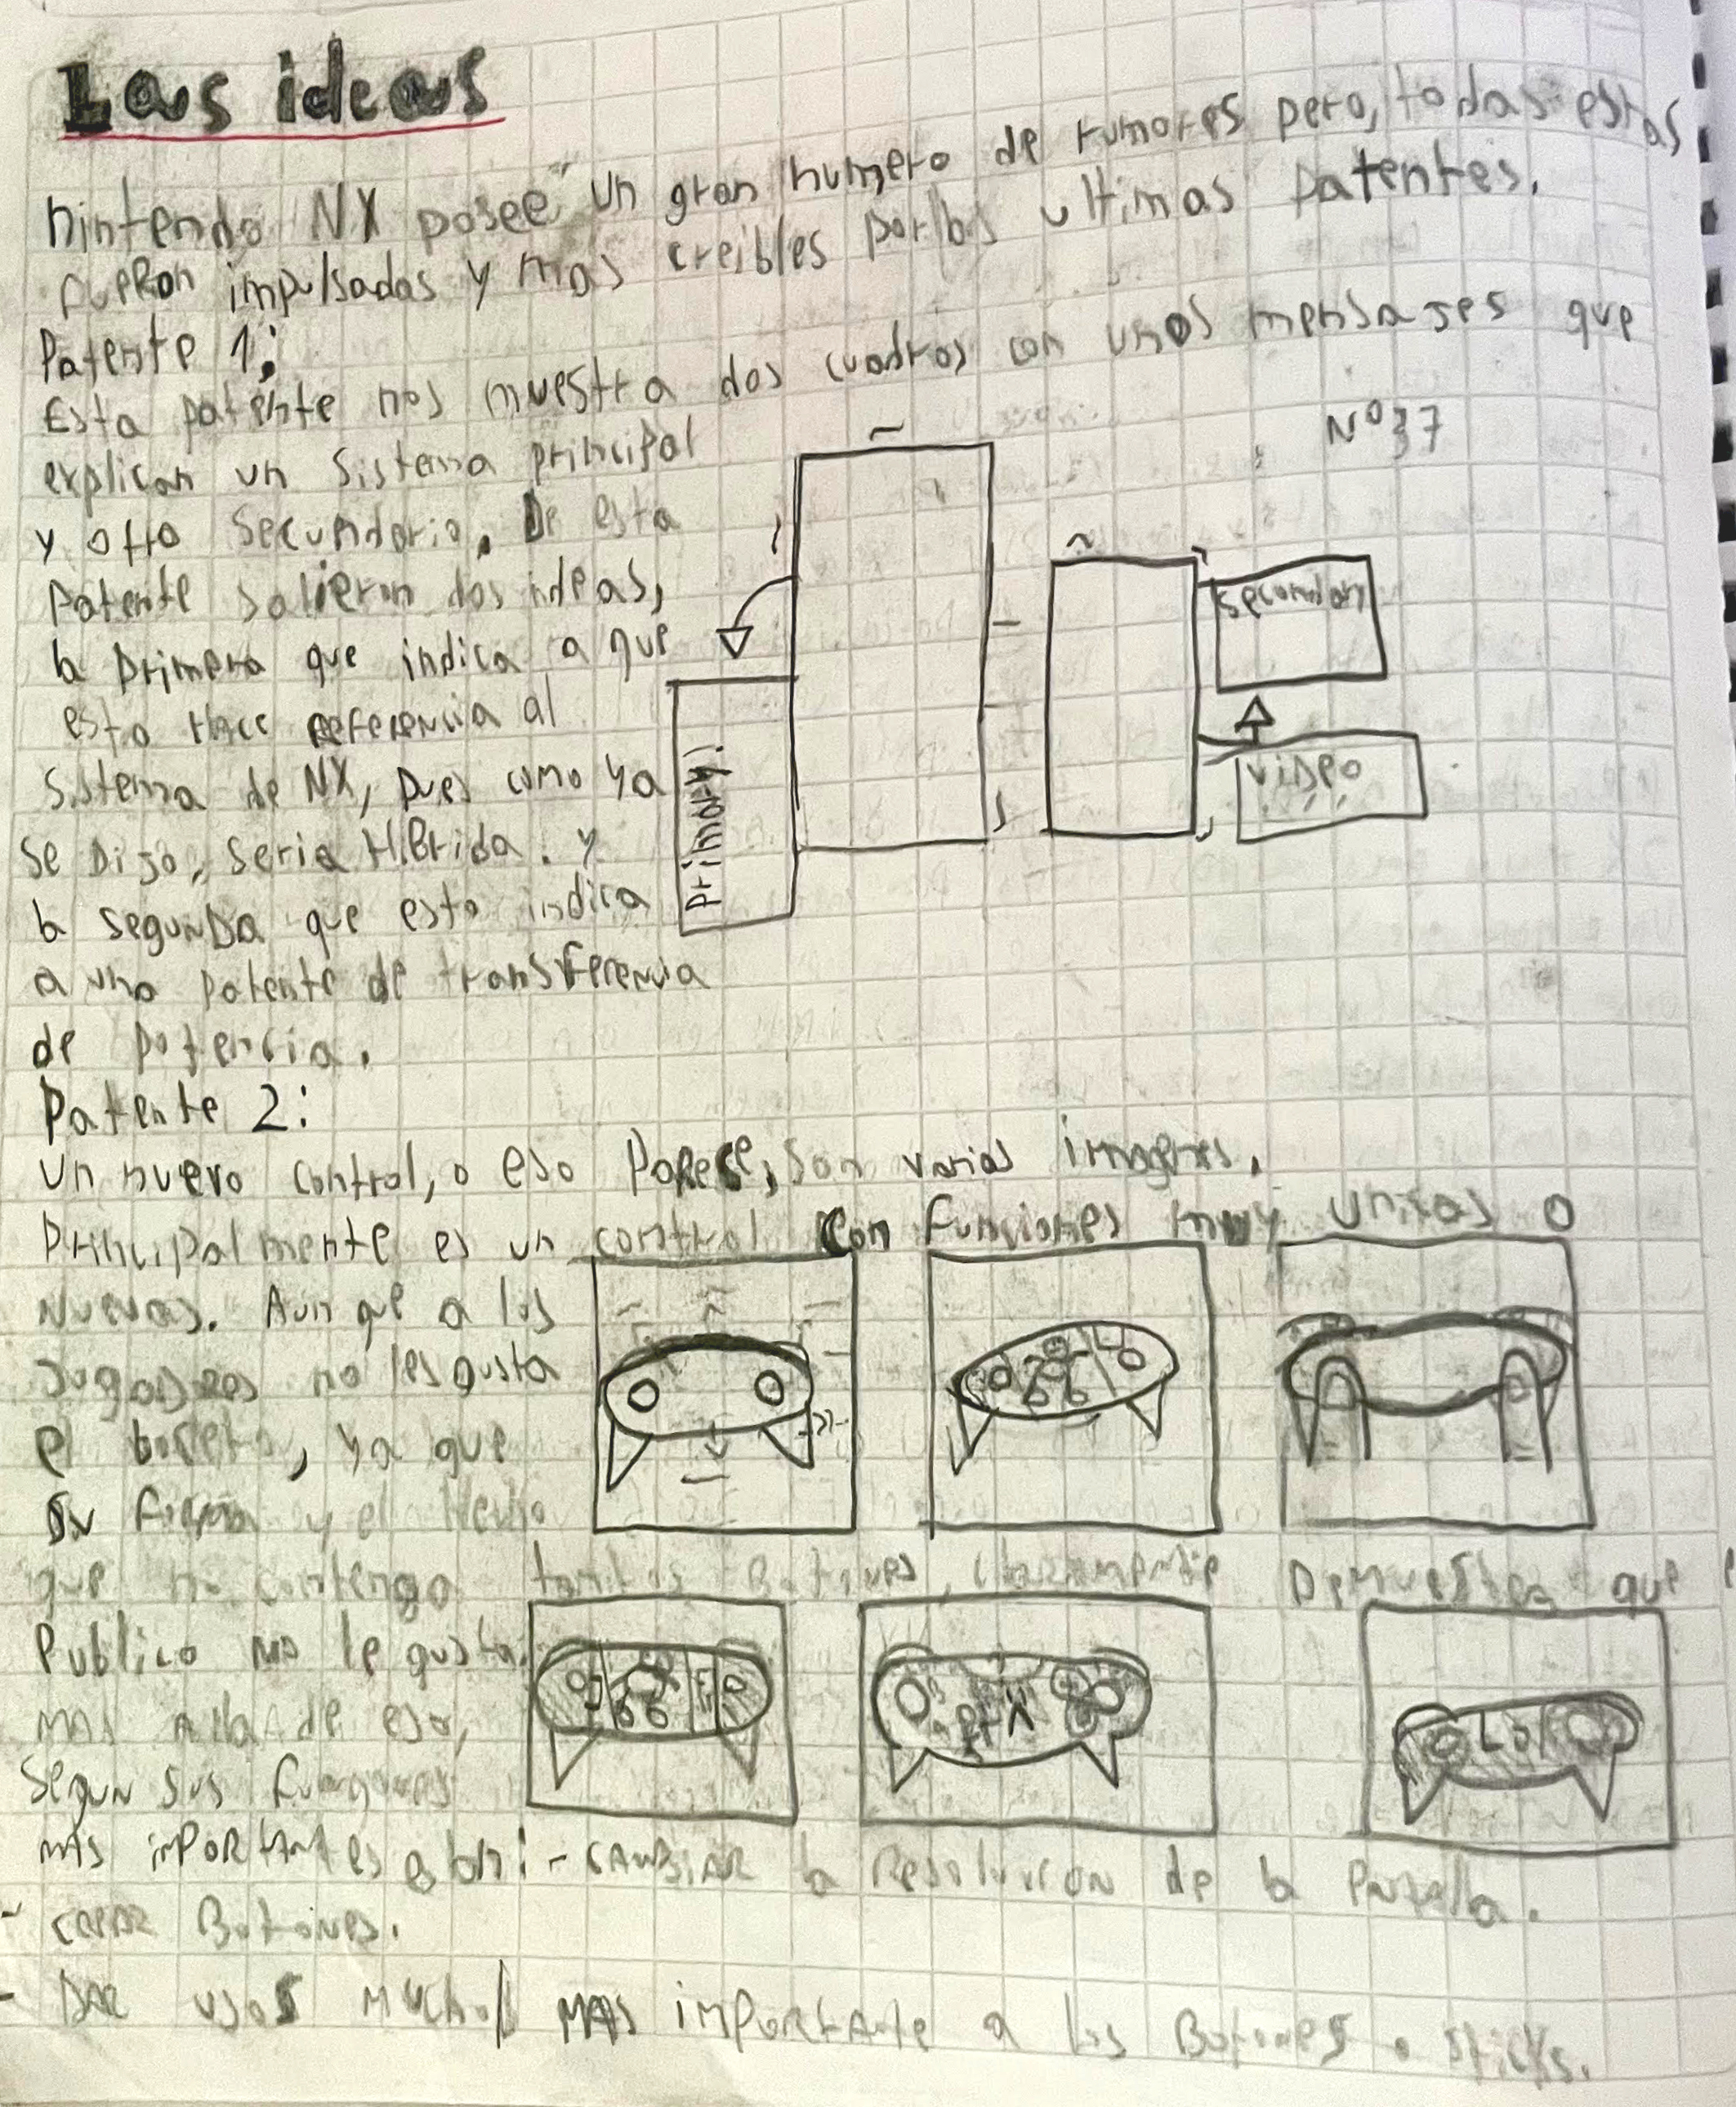 Las ideas
Nintendo NX posee un gran numero de rumores pero, todas estas
fueron impulsadas y mas creibles por las ultimas patentes.
Patente 1:
Esta patente nos muestra dos cuadros con unos mensajes que
N°37
explican un sistema principal
y otro secundario. De esta
patente salieron dos ideas,
la primera que indica a que
esto Hace referencia al
sistema de NX, pues como ya
se Dijo, seria HiBrida. y
la segunda que esto indica
a una patente de transferencia
de potencia.
primary
secondary
video
Patente 2:
Un nuevo control, o eso Parece, son varias imagenes.
Principalmente es un control con funciones muy unicas o
Nuevas. Aun que a los
Jugadores no les gusta
el boceto, ya que
su forma y el Hecho
que no contenga tantos Botones, claramente Demuestra que
Publico no le gusta.
mas alla de eso,
Segun sus funciones
mas importantes son: - cambiar la Resolucion de la Pantalla.
- crear Botones.
- Dar usos muchos mas importante a los Botones o sticks.